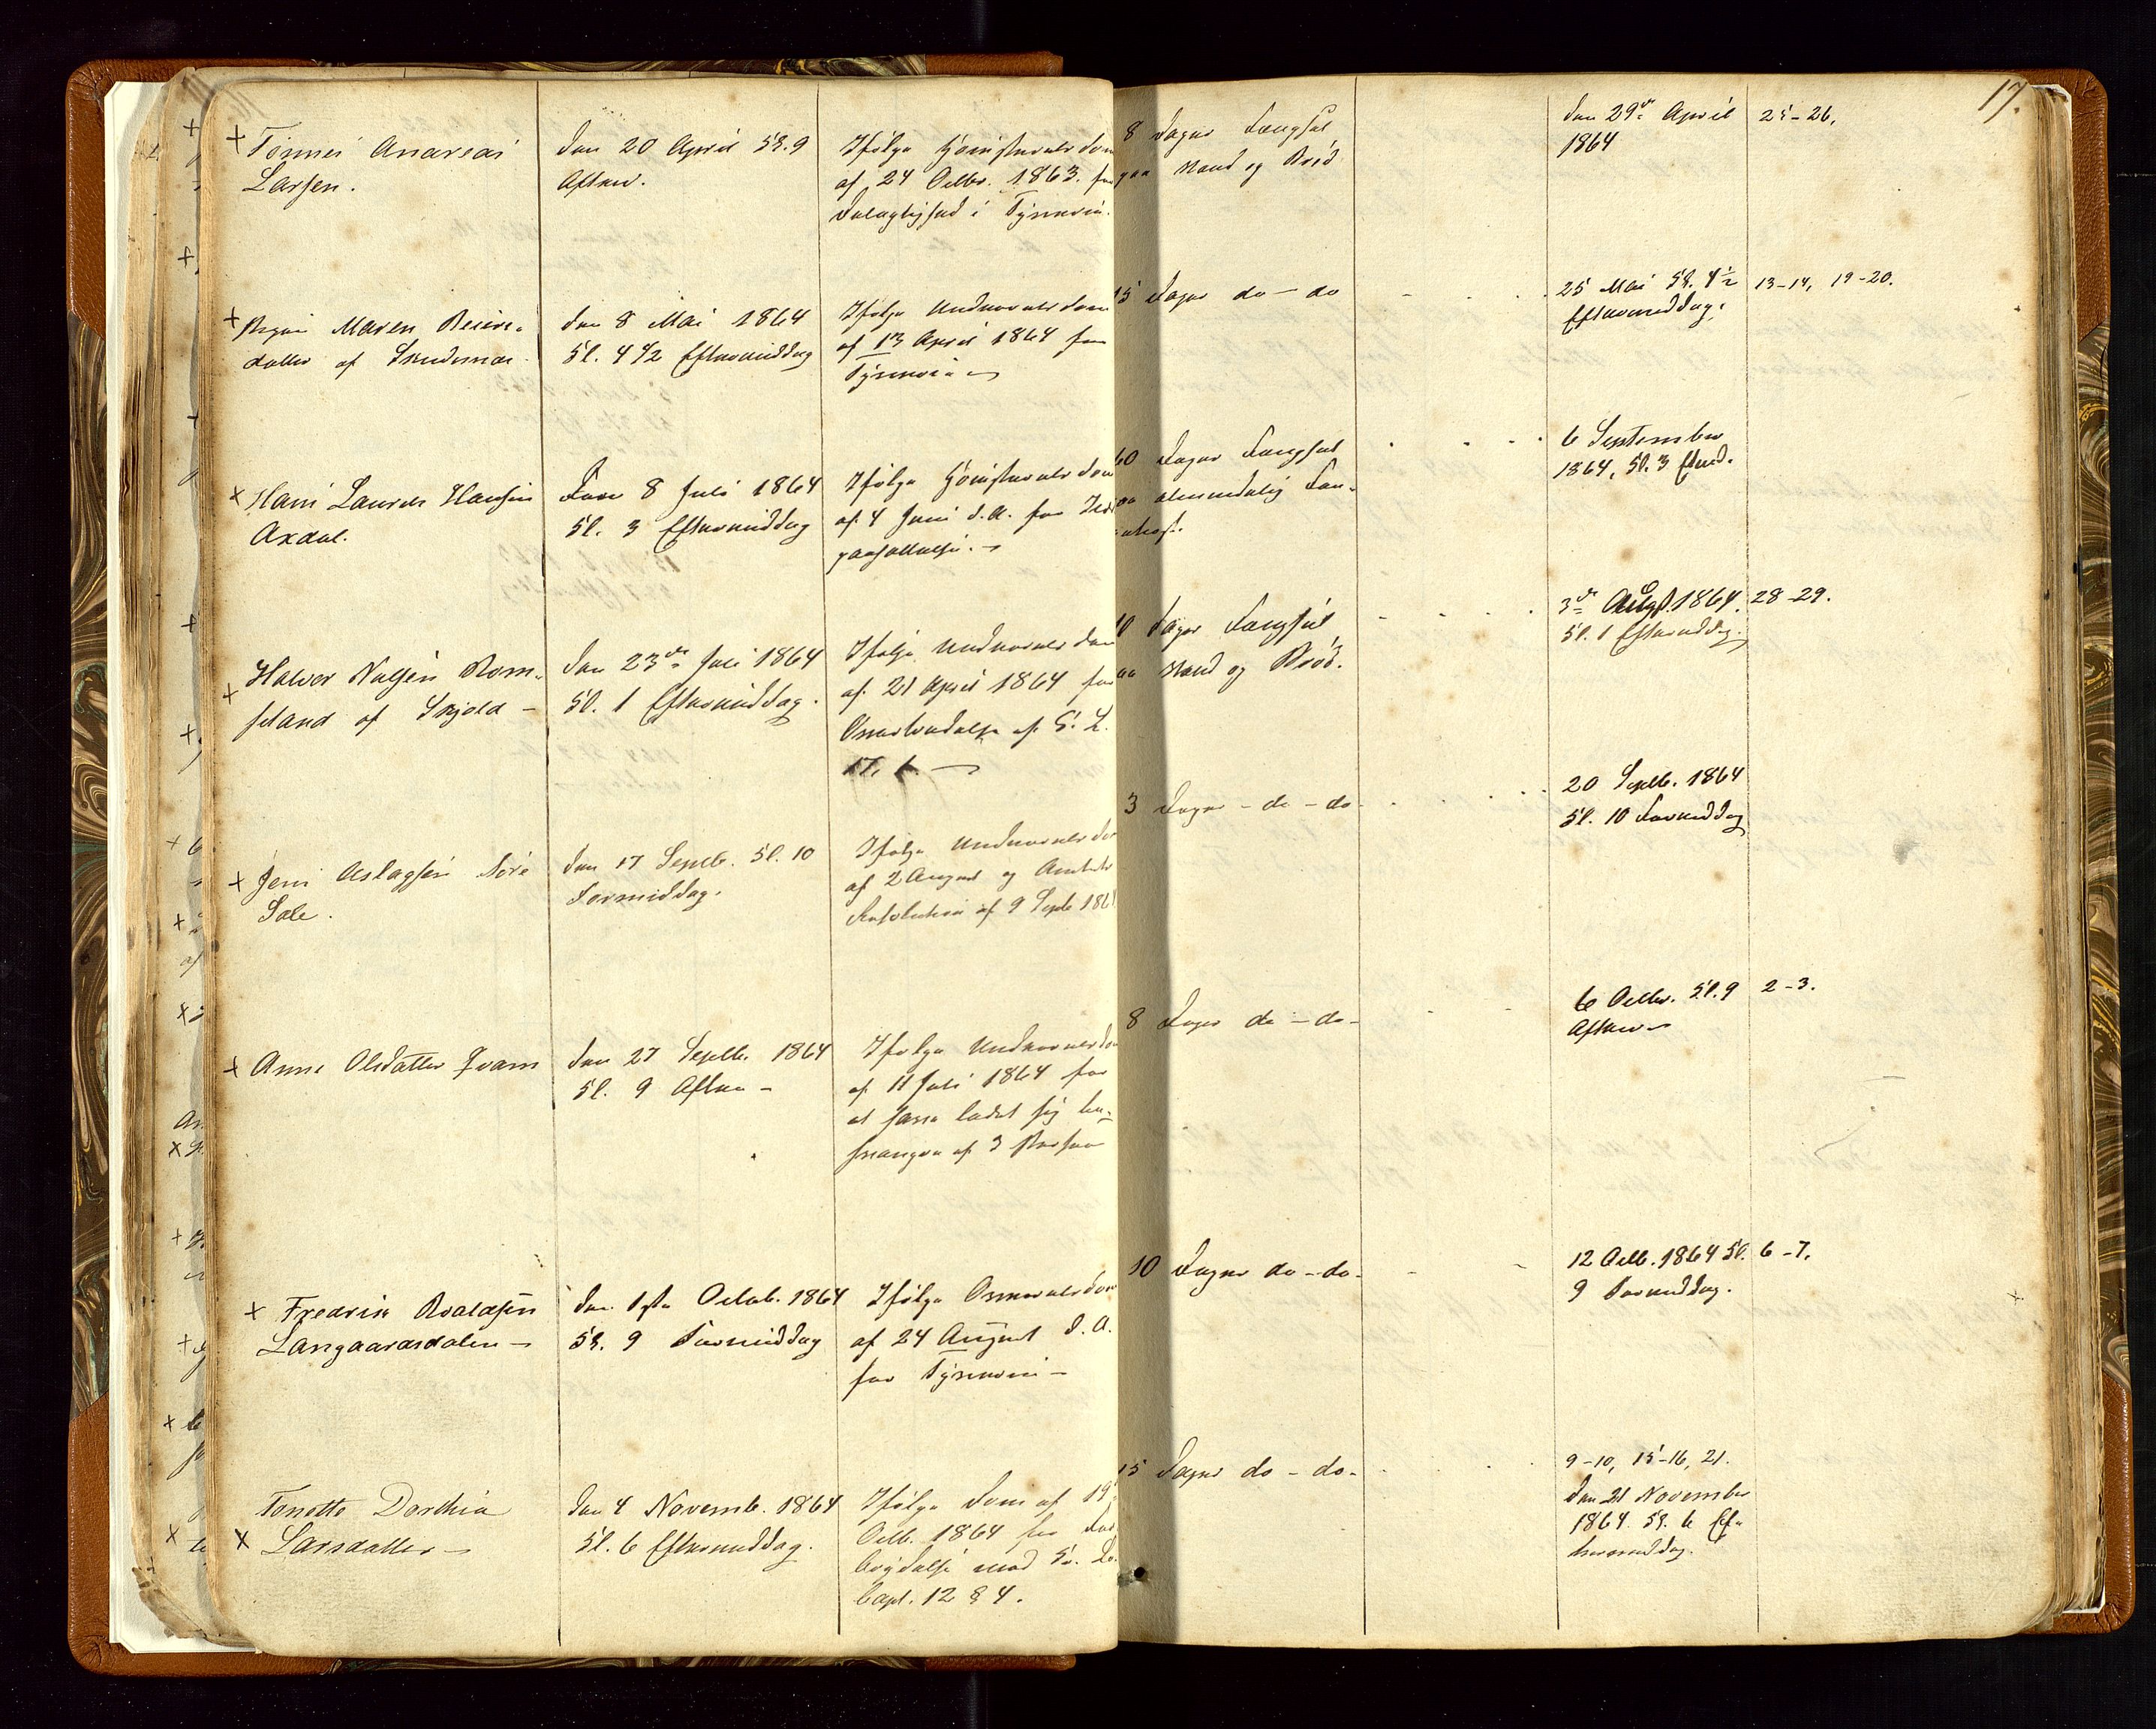 17.
+ Tønnes Andreas
Larsen.
Den 20 April Kl. 9
Aften.
Ifølge Høiesteretsdom
af 24 Octbr. 1863 for
Delagtighed i Tyveri.
8 Dages Fængsel
paa Vand og Brød
Den 29de April
1864
25-26.
+ Maren
datter af
den 8 Mai 1864
Kl. 4 1/2 Eftermiddag
Ifølge Underretsdom
af 13 April 1864 for
Tyveri
15 Dages do - do
25 Mai Kl. 4 1/2
Eftermiddag.
13-14, 19-20.
+ Hans Laurits Hansen
Axdal.
Den 8 Juli 1864
Kl. 3 Eftermiddag
Ifølge Høiesteretsdom
af 4 Juni d.A. for
60 Dages Fængsel
paa almindelig Fan-
gekost.
6 September
1864, Kl. 3 Eftmd.
+ Halvor Nilsen Rom-
sland af Skjold -
den 23de Juli 1864
Kl. 1 Eftermiddag.
Ifølge Underretsdom
af 21 April 1864 for
Overtrædelse af K. L.
17.
10 Dages Fængsel
paa Vand og Brød.
3de Augst. 1864.
Kl. 1 Eftermiddag.
28-29.
+ Jens Aslagsen Nore
Sale.
den 17 Septb. Kl. 10
Formiddag.
Ifølge Underretsdom
af 2 August og Amtets
Resolution af 9 Septb 1864
3 Dages - do - do-
20 Septb. 1864
Kl. 10 Formiddag
+ Anne Olsdatter Qvam
den 27 Septb. 1864
Kl. 9 Aften -
Ifølge Underretsdom
af 11 Juli 1864 for
at have ladet sig be-
svangre af 3
8 Dages do - do-
6 Octbr. Kl. 9
Aften
2-3.
+ Fredrik Roaldsen
Langaardsdalen -
den 1ste Octob. 1864
Kl. 9 Formiddag
Ifølge Overretsdom
af 24 August d.A.
for Tyveri -
10 Dages do - do-
12 Octb. 1864 Kl.
9 Formiddag.
6-7.
Tonette Dorthea
+ Larsdatter -
den 4 Novemb. 1864
Kl. 6 Eftermiddag.
Ifølge Dom af 19
Octb. 1864 for For-
brydelse mod Kr. L.
Capt. 12 § 4.
15 Dages do - do-
9-10, 15-16, 21.
Den 21 November
1864 Kl. 6 Ef-
termiddag.